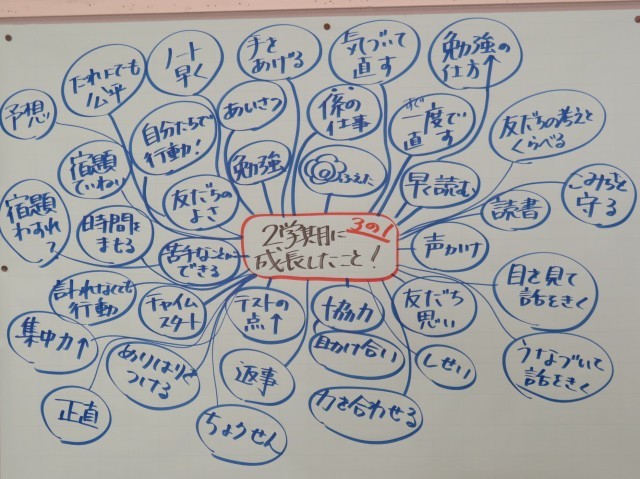 3の1
2学期に
成長したこと!
ノート
早く
手を
あげる
気づいて
直す
勉強の
仕方↑
だれにでも
公平
予想
自分たちで
行動!
あいさつ
係の
仕事
一度で
直す
友だちの考えと
くらべる
宿題
ていねい
勉強
ふえた
早く読む
読書
こみちを
守る
宿題
わすれ
友だちの
よさ
時間を
苦手なことが
できる
声かけ
目を見て
話をきく
行動
チャイム
スタート
テストの
点↑
協力
友だち
思い
集中力↑
つける
返事
助け合い
しせい
うなづいて
話をきく
正直
ちょうせん
力を合わせる